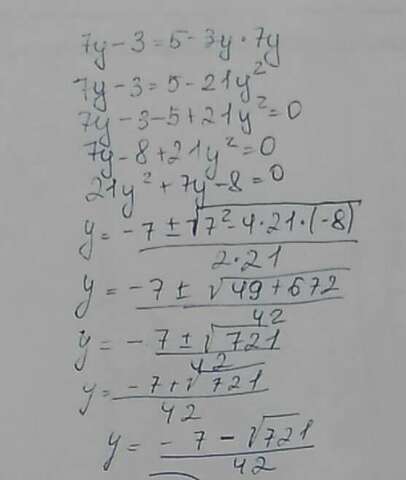 7y - 3 = 5 - 3y · 7y
7y - 3 = 5 - 21y²
7y - 3 - 5 + 21y² = 0
7y - 8 + 21y² = 0
21y² + 7y - 8 = 0
y = (-7 ± √(7² - 4 · 21 · (-8))) / (2 · 21)
y = (-7 ± √(49 + 672)) / 42
y = (-7 ± √721) / 42
y = (-7 + √721) / 42
y = (-7 - √721) / 42